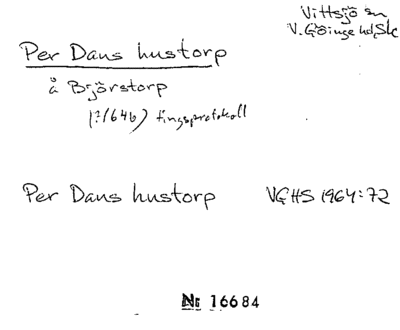 Vittsjö sn
V. Göinge hd, Sk
Per Dans hustorp
å Björstorp
(?/1646) tingsprotokoll
Per Dans hustorp VGHS 1964:72
Nr 16684